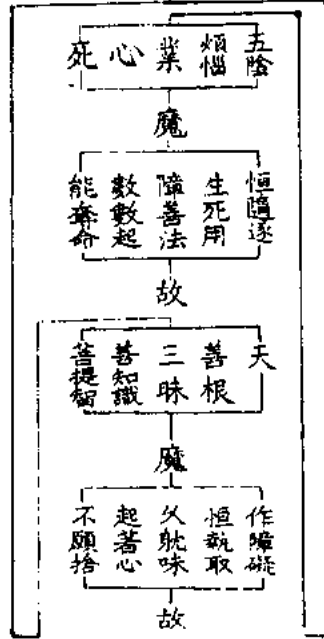 五陰
煩惱
業
心
死
魔
恒隨逐
生死用
障善法
數數起
能奪命
故
天
善根
三昧
善知識
菩提智
魔
作障礙
恒執取
久耽味
起著心
不願捨
故